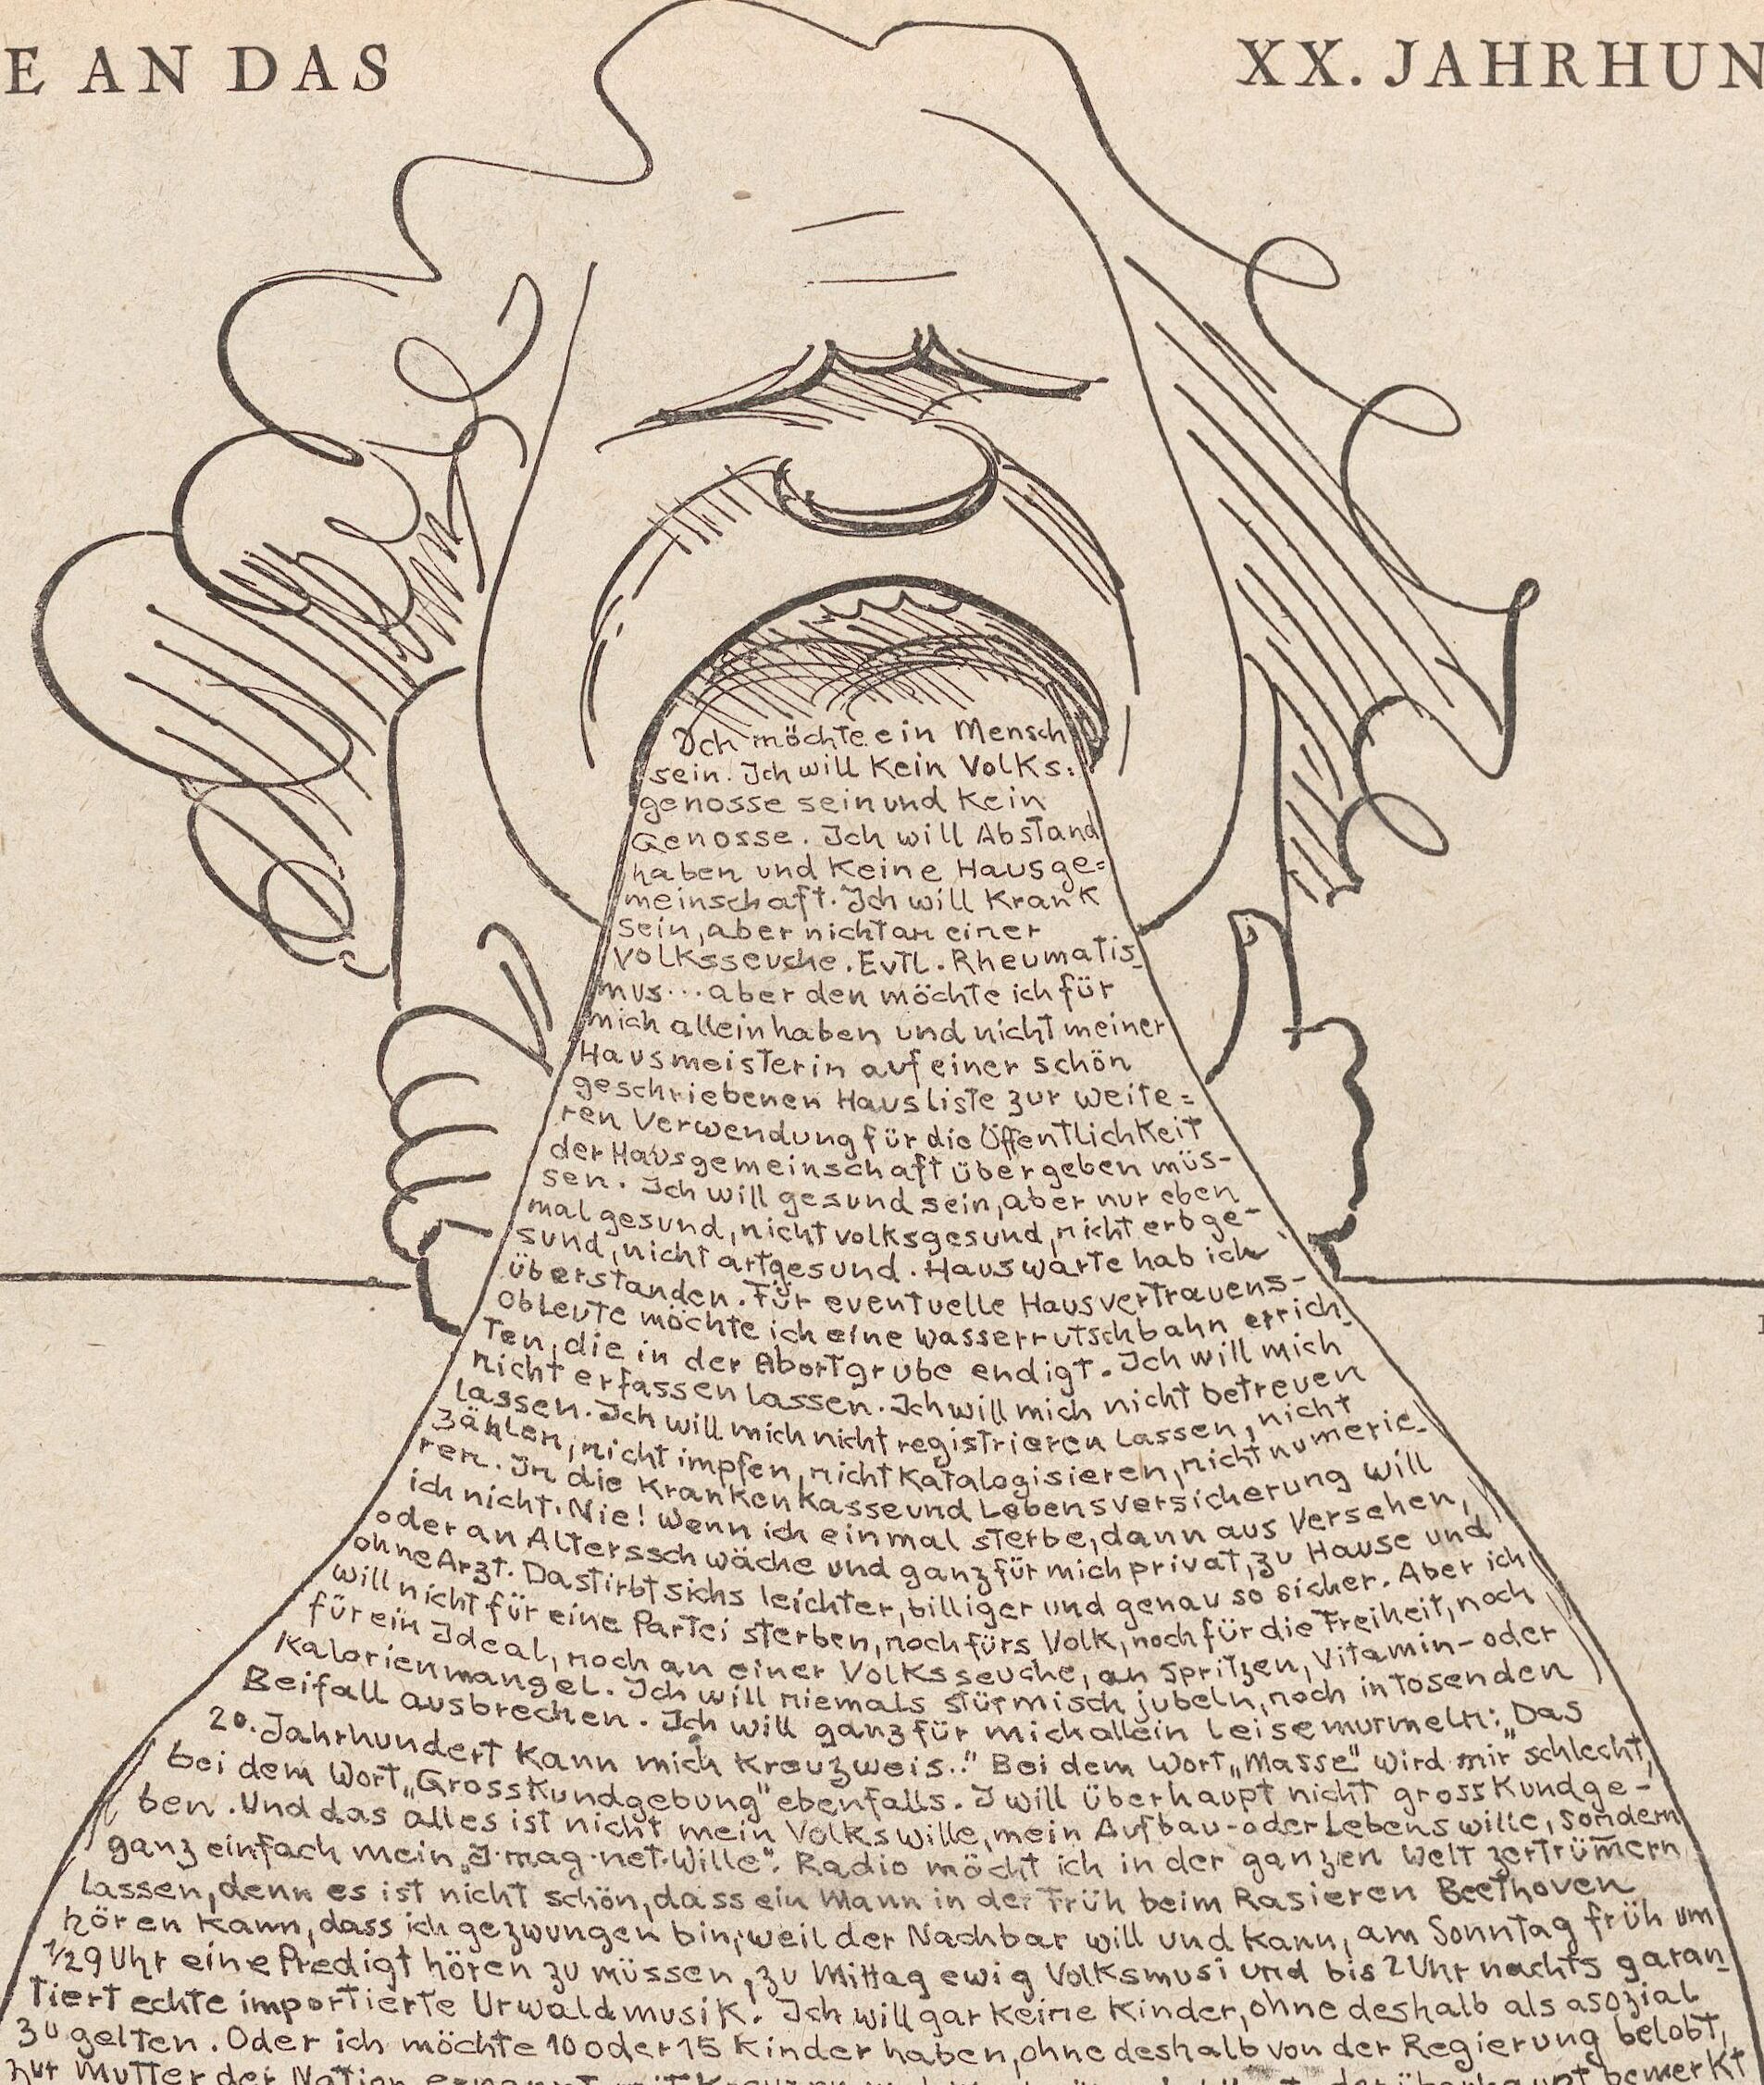 E AN DAS XX. JAHRHUN
Ich möchte ein Mensch
sein. Ich will kein Volks=
genosse sein und kein
Genosse. Ich will Abstand
haben und keine Hausge=
meinschaft. Ich will krank
sein, aber nicht an einer
Volksseuche. Evtl. Rheumatis-
mus... aber den möchte ich für
mich allein haben und nicht meiner
Hausmeisterin auf einer schön
geschriebenen Hausliste zur weite=
ren Verwendung für die Öffentlichkeit
der Hausgemeinschaft übergeben müs-
sen. Ich will gesund sein, aber nur eben
mal gesund, nicht volksgesund, nicht erbge-
sund, nicht artgesund. Hauswarte hab ich
überstanden. Für eventuelle Hausvertrauens-
obleute möchte ich eine Wasserrutschbahn errich-
ten, die in der Abortgrube endigt. Ich will mich
nicht erfassen lassen. Ich will mich nicht betreuen
lassen. Ich will mich nicht registrieren lassen, nicht
zählen, nicht impfen, nicht katalogisieren, nicht numerie-
ren. In die Krankenkasse und Lebensversicherung will
ich nicht. Nie! Wenn ich einmal sterbe, dann aus Versehen,
oder an Altersschwäche und ganz für mich privat, zu Hause und
ohne Arzt. Da stirbt sichs leichter, billiger und genau so sicher. Aber ich
will nicht für eine Partei sterben, noch fürs Volk, noch für die Freiheit, noch
für ein Ideal, noch an einer Volksseuche, an Spritzen, Vitamin- oder
Kalorienmangel. Ich will niemals stürmisch jubeln, noch in tosenden
Beifall ausbrechen. Ich will ganz für mich allein leise murmeln: „Das
20. Jahrhundert kann mich kreuzweis.." Bei dem Wort „Masse" wird mir schlecht,
bei dem Wort „Grosskundgebung" ebenfalls. I will überhaupt nicht gross kundge-
ben. Und das alles ist nicht mein Volkswille, mein Aufbau- oder Lebenswille, sondern
ganz einfach mein „I-mag-net-Wille". Radio möcht ich in der ganzen Welt zertrümern
lassen, denn es ist nicht schön, dass ein Mann in der Früh beim Rasieren Beethoven
hören kann, dass ich gezwungen bin, weil der Nachbar will und kann, am Sonntag früh um
1/29 Uhr eine Predigt hören zu müssen, zu Mittag ewig Volksmusi und bis 2 Uhr nachts garan-
tiert echte importierte Urwaldmusik. Ich will gar keine Kinder, ohne deshalb als asozial
zu gelten. Oder ich möchte 10 oder 15 Kinder haben, ohne deshalb von der Regierung belobt,
zur Mutter der Nation bemerkt